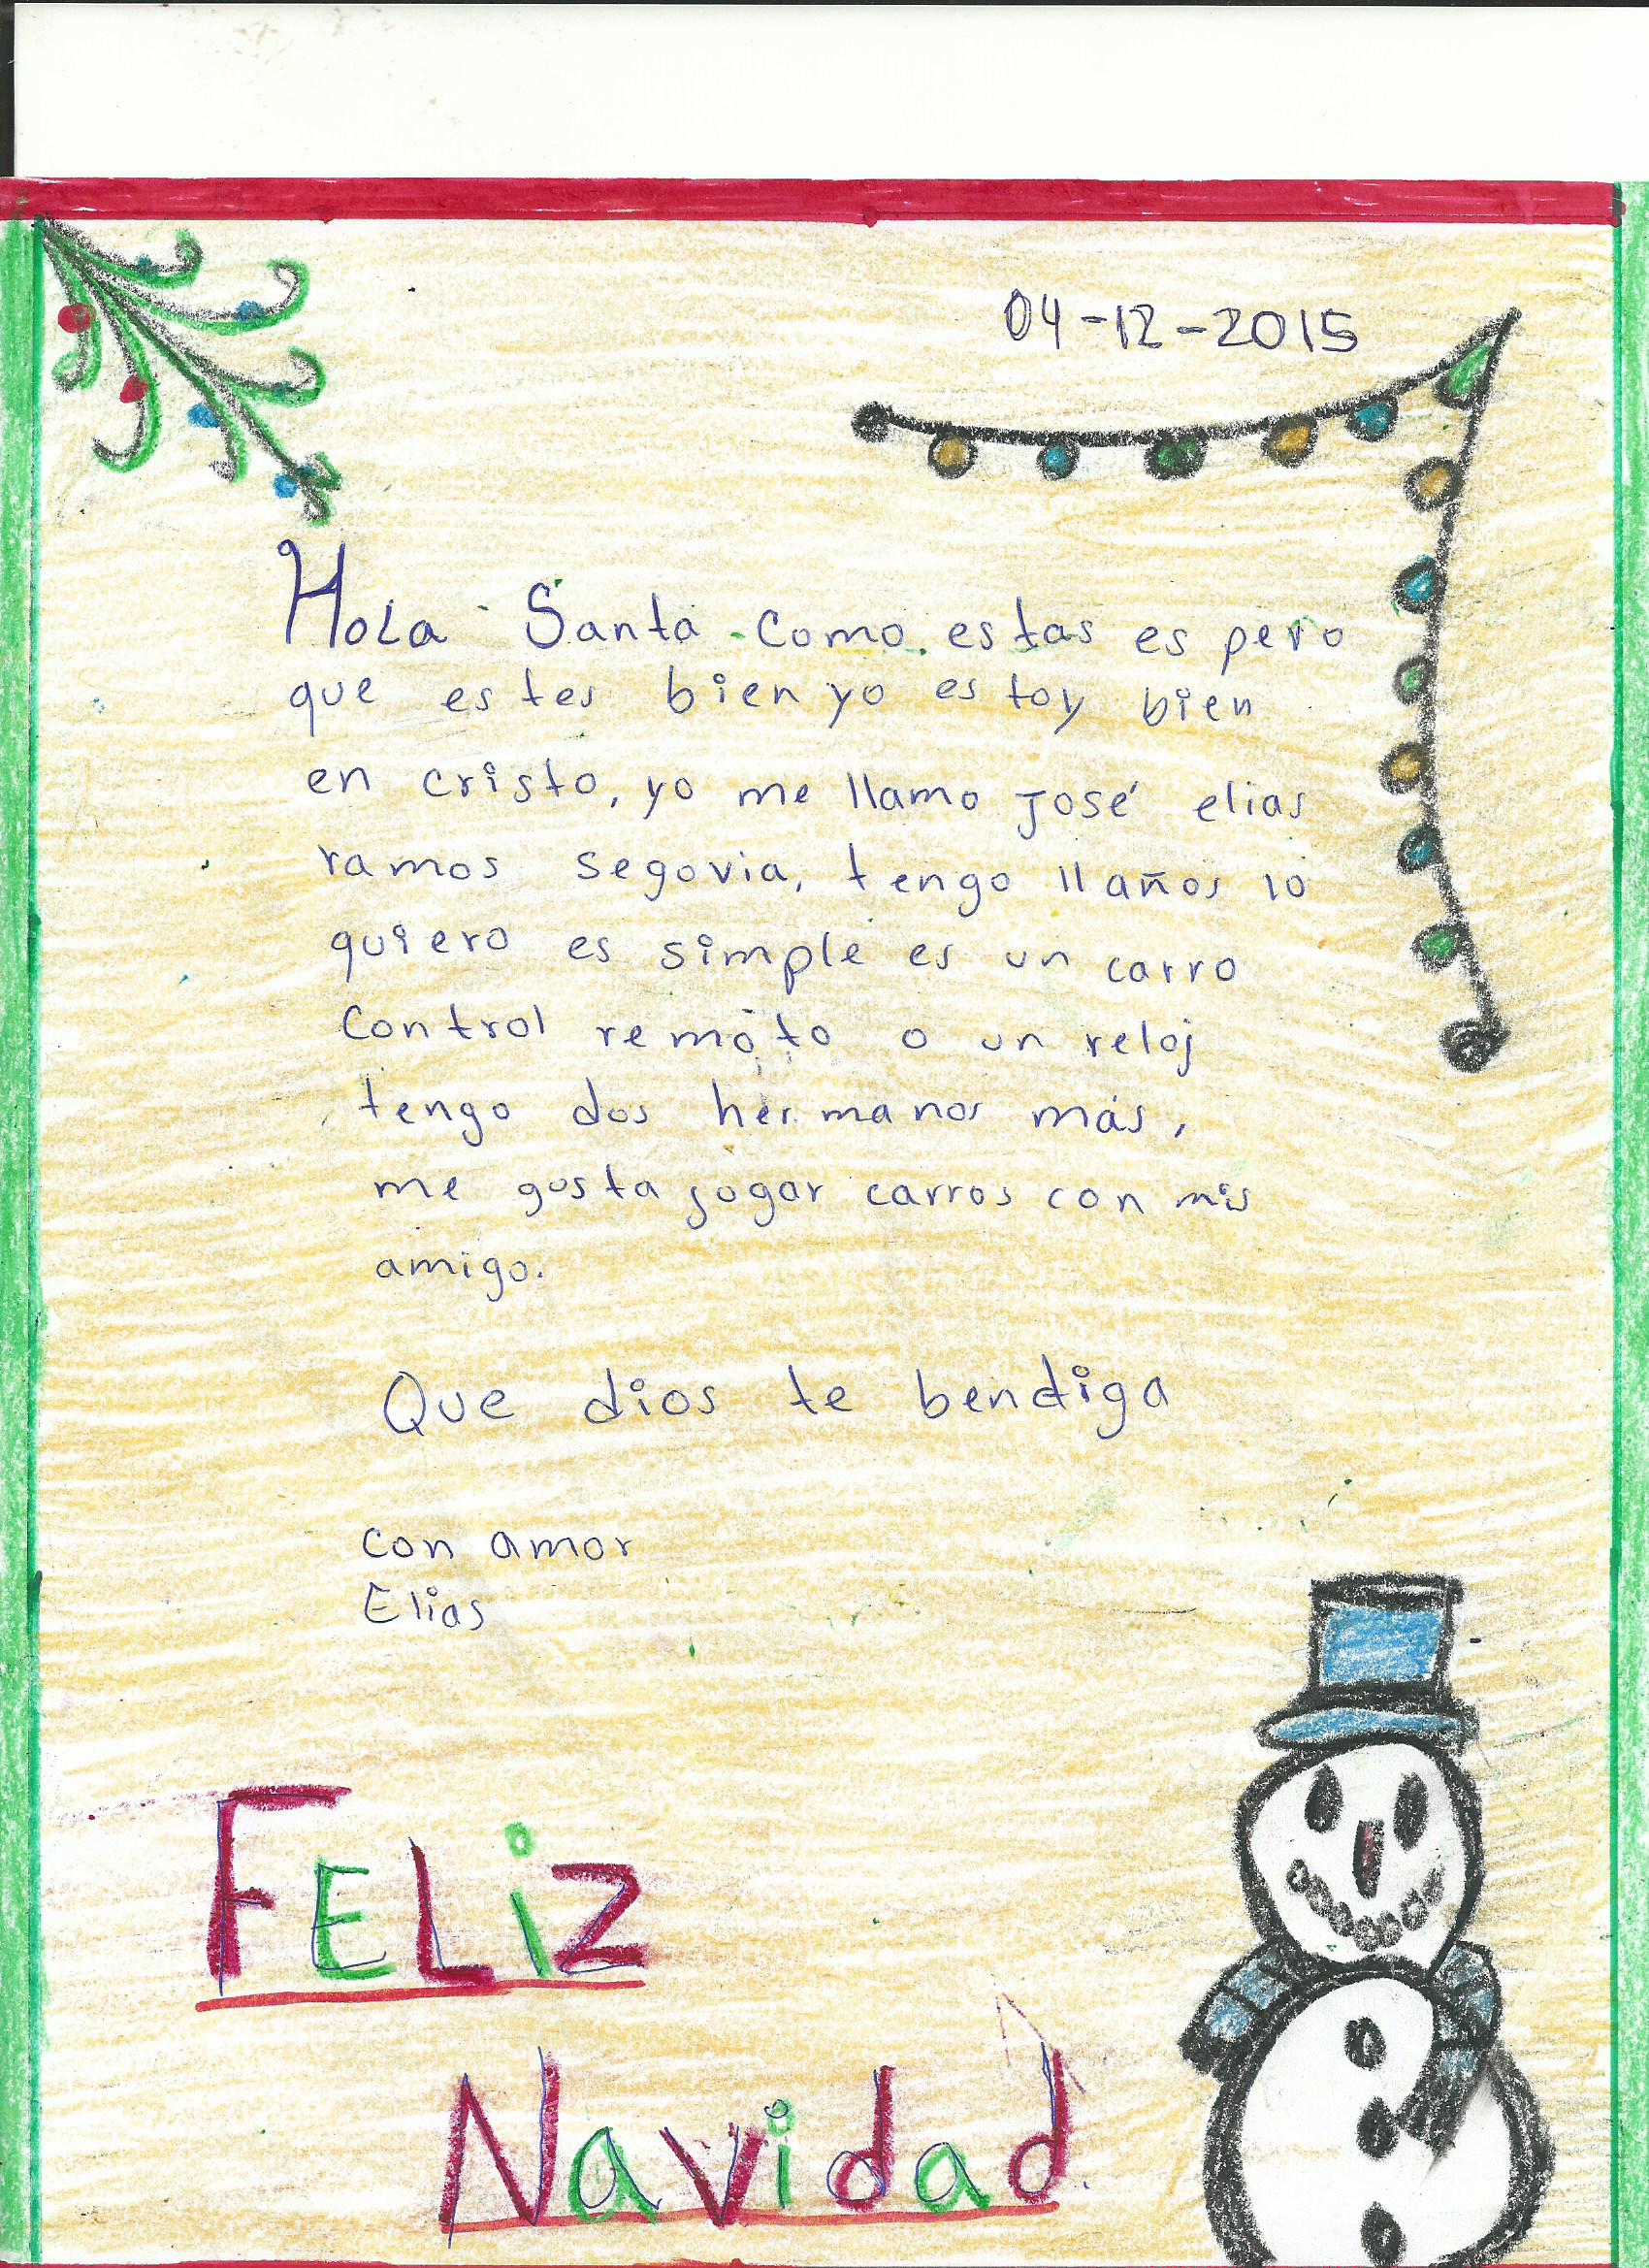 04-12-2015
Hola Santa como estas es pero
que estes bien yo estoy bien
en cristo, yo me llamo José elias
ramos segovia, tengo 11 años lo
quiero es simple es un carro
control remoto o un reloj
tengo dos hermanos más,
me gusta jogar carros con mis
amigo.
Que dios te bendiga
con amor
Elias
FELiZ
Navidad.